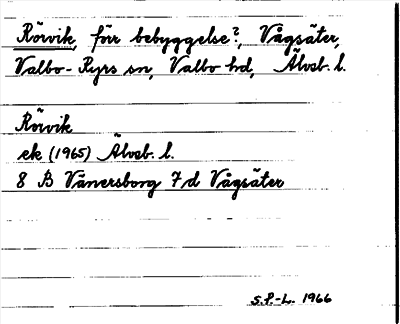 Rörvik, förr bebyggelse?, Vågsäter,
Valbo-Ryrs sn, Valbo hd, Älvsb. l.
Rörvik
ek (1965) Älvsb. l.
8 B Vänersborg 7d Vågsäter
S.P.-L. 1966